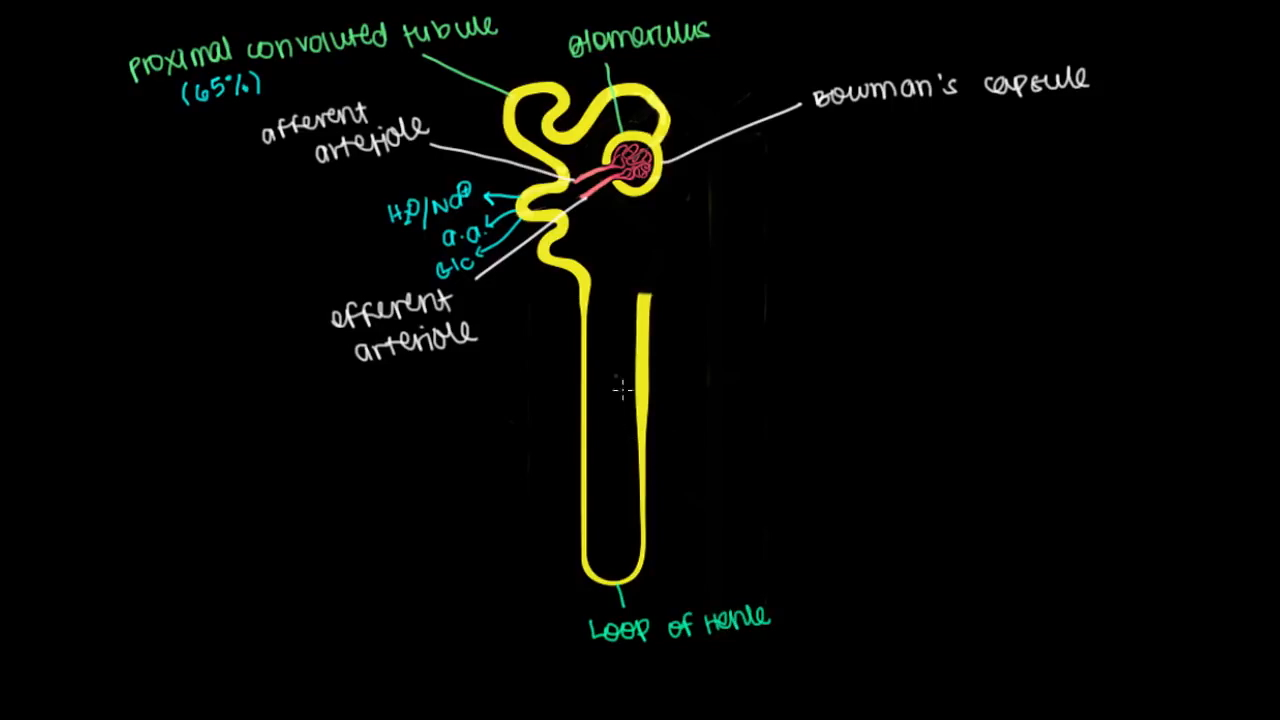 proximal convoluted tubule
(65%)
glomerulus
Bowman's capsule
afferent
arteriole
H2O/Na+
a.a.
Glc
efferent
arteriole
Loop of Henle